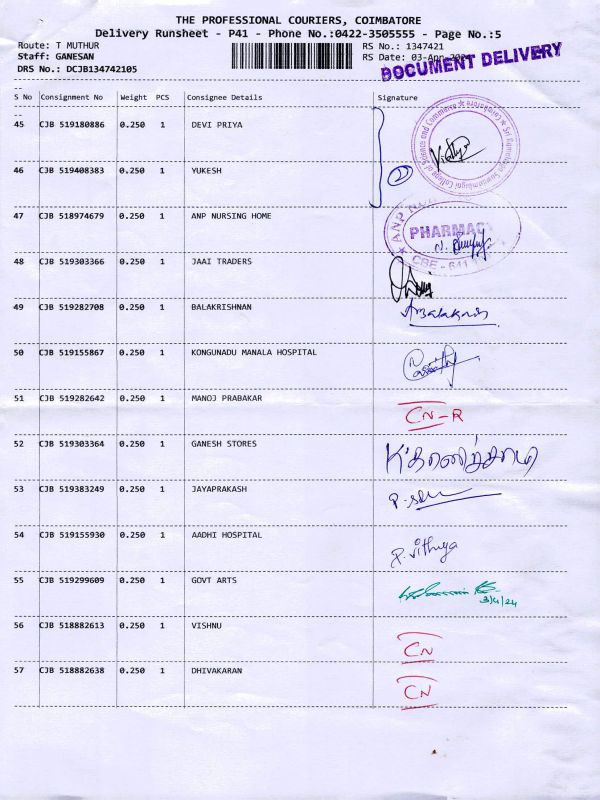 THE PROFESSIONAL COURIERS, COIMBATORE
Delivery Runsheet - P41 - Phone No.:0422-3505555 - Page No.:5
Route: T MUTHUR RS No.: 1347421
Staff: GANESAN RS Date: 03-Apr-
DRS No.: DCJB134742105 DOCUMENT DELIVERY
--
S No Consignment No Weight PCS Consignee Details Signature
--
45 CJB 519180886 0.250 1 DEVI PRIYA
46 CJB 519408383 0.250 1 YUKESH 2
47 CJB 518974679 0.250 1 ANP NURSING HOME
PHARMACY
CBE - 641
48 CJB 519303366 0.250 1 JAAI TRADERS
49 CJB 519282708 0.250 1 BALAKRISHNAN
50 CJB 519155867 0.250 1 KONGUNADU MANALA HOSPITAL
51 CJB 519282642 0.250 1 MANOJ PRABAKAR CN-R
52 CJB 519303364 0.250 1 GANESH STORES
53 CJB 519383249 0.250 1 JAYAPRAKASH
54 CJB 519155930 0.250 1 AADHI HOSPITAL P. Vithya
55 CJB 519299609 0.250 1 GOVT ARTS 3/4/24
56 CJB 518882613 0.250 1 VISHNU CN
57 CJB 518882638 0.250 1 DHIVAKARAN CN